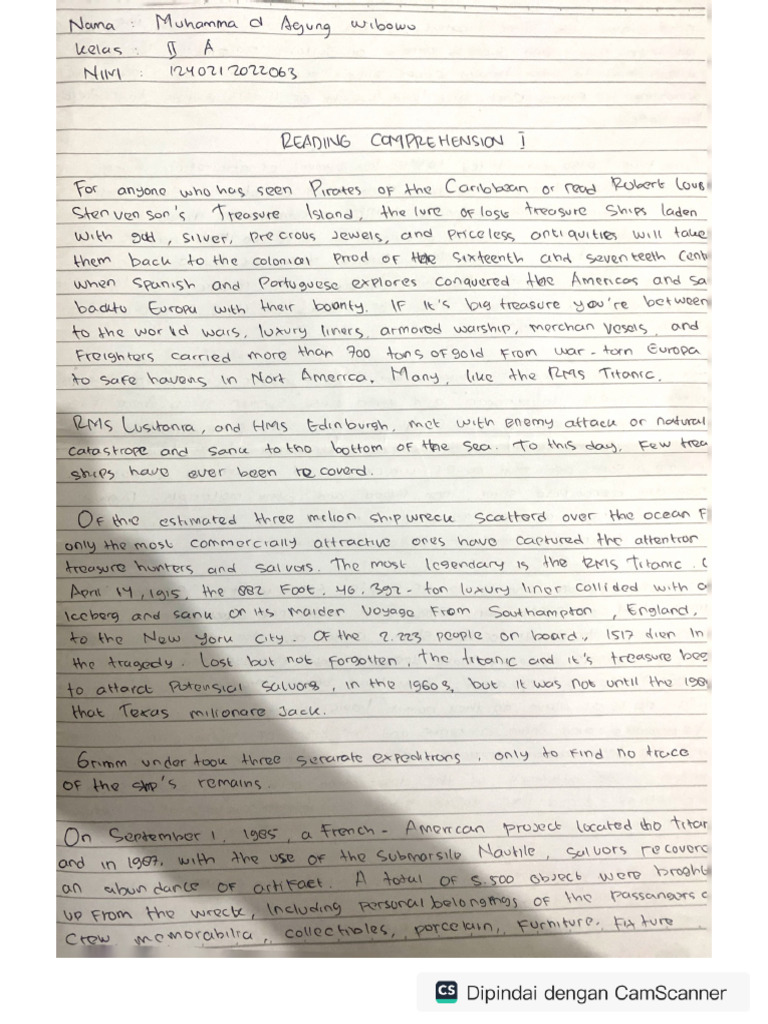 Nama : Muhammad Agung Wibowo
Kelas : II A
NIM : 1240217022063
READING COMPREHENSION I
For anyone who has seen Pirates of the Caribbean or read Robert Lous
Stenvenson's Treasure Island, the lure of lost treasure ships laden
with gold, silver, precrous jewels, and priceless antiquities will take
them back to the colonial Priod of the Sixteenth and seventeeth Cent
when Spanish and Portuguese explores conquered the Americas and sa
backto Europa with their boonty. IF it's big treasure you're between
to the world wars, luxury liners, armored warship, merchan vesels, and
Freighters carried more than 700 tons of gold From war-torn Europa
to safe havens in Nort America. Many, like the RMS Titanic.
RMS Lusitania, and HMS Edinburgh, met with enemy attack or natural
catastrope and sank to tho bottom of the Sea. To this day, Few trea
ships have ever been recoverd.
Of the estimated three melion shipwreck scatterd over the ocean F
only the most commercially attractive ones have captured the attention
treasure hunters and salvors. The most legendary is the RMS Titanic. (
April 14, 1915, the 882 Foot, 46.392-ton luxury liner collided with a
Iceberg and sank on its maiden Voyage From Southampton, England,
to the New York City. Of the 2.223 people on board, 1517 dien In
the tragedy. Lost but not forgotten, the titanic and it's treasure bee
to attarct Potensial Salvors, in the 1960s, but it was not until the 198
that Texas milionare Jack.
Grimm undertook three serarate expeditions, only to find no trace
of the ship's remains.
On September 1, 1985, a French-American project located tho titan
and in 1987, with the use of the Submarsile Nautile, salvors recovere
an abundance of artifaet. A total of 5.500 object were broght
up from the wreck, Including personal belongings of the Passangers a
Crew memorabilia, collectioles, porcelain, Furniture. Fixture
CS Dipindai dengan CamScanner